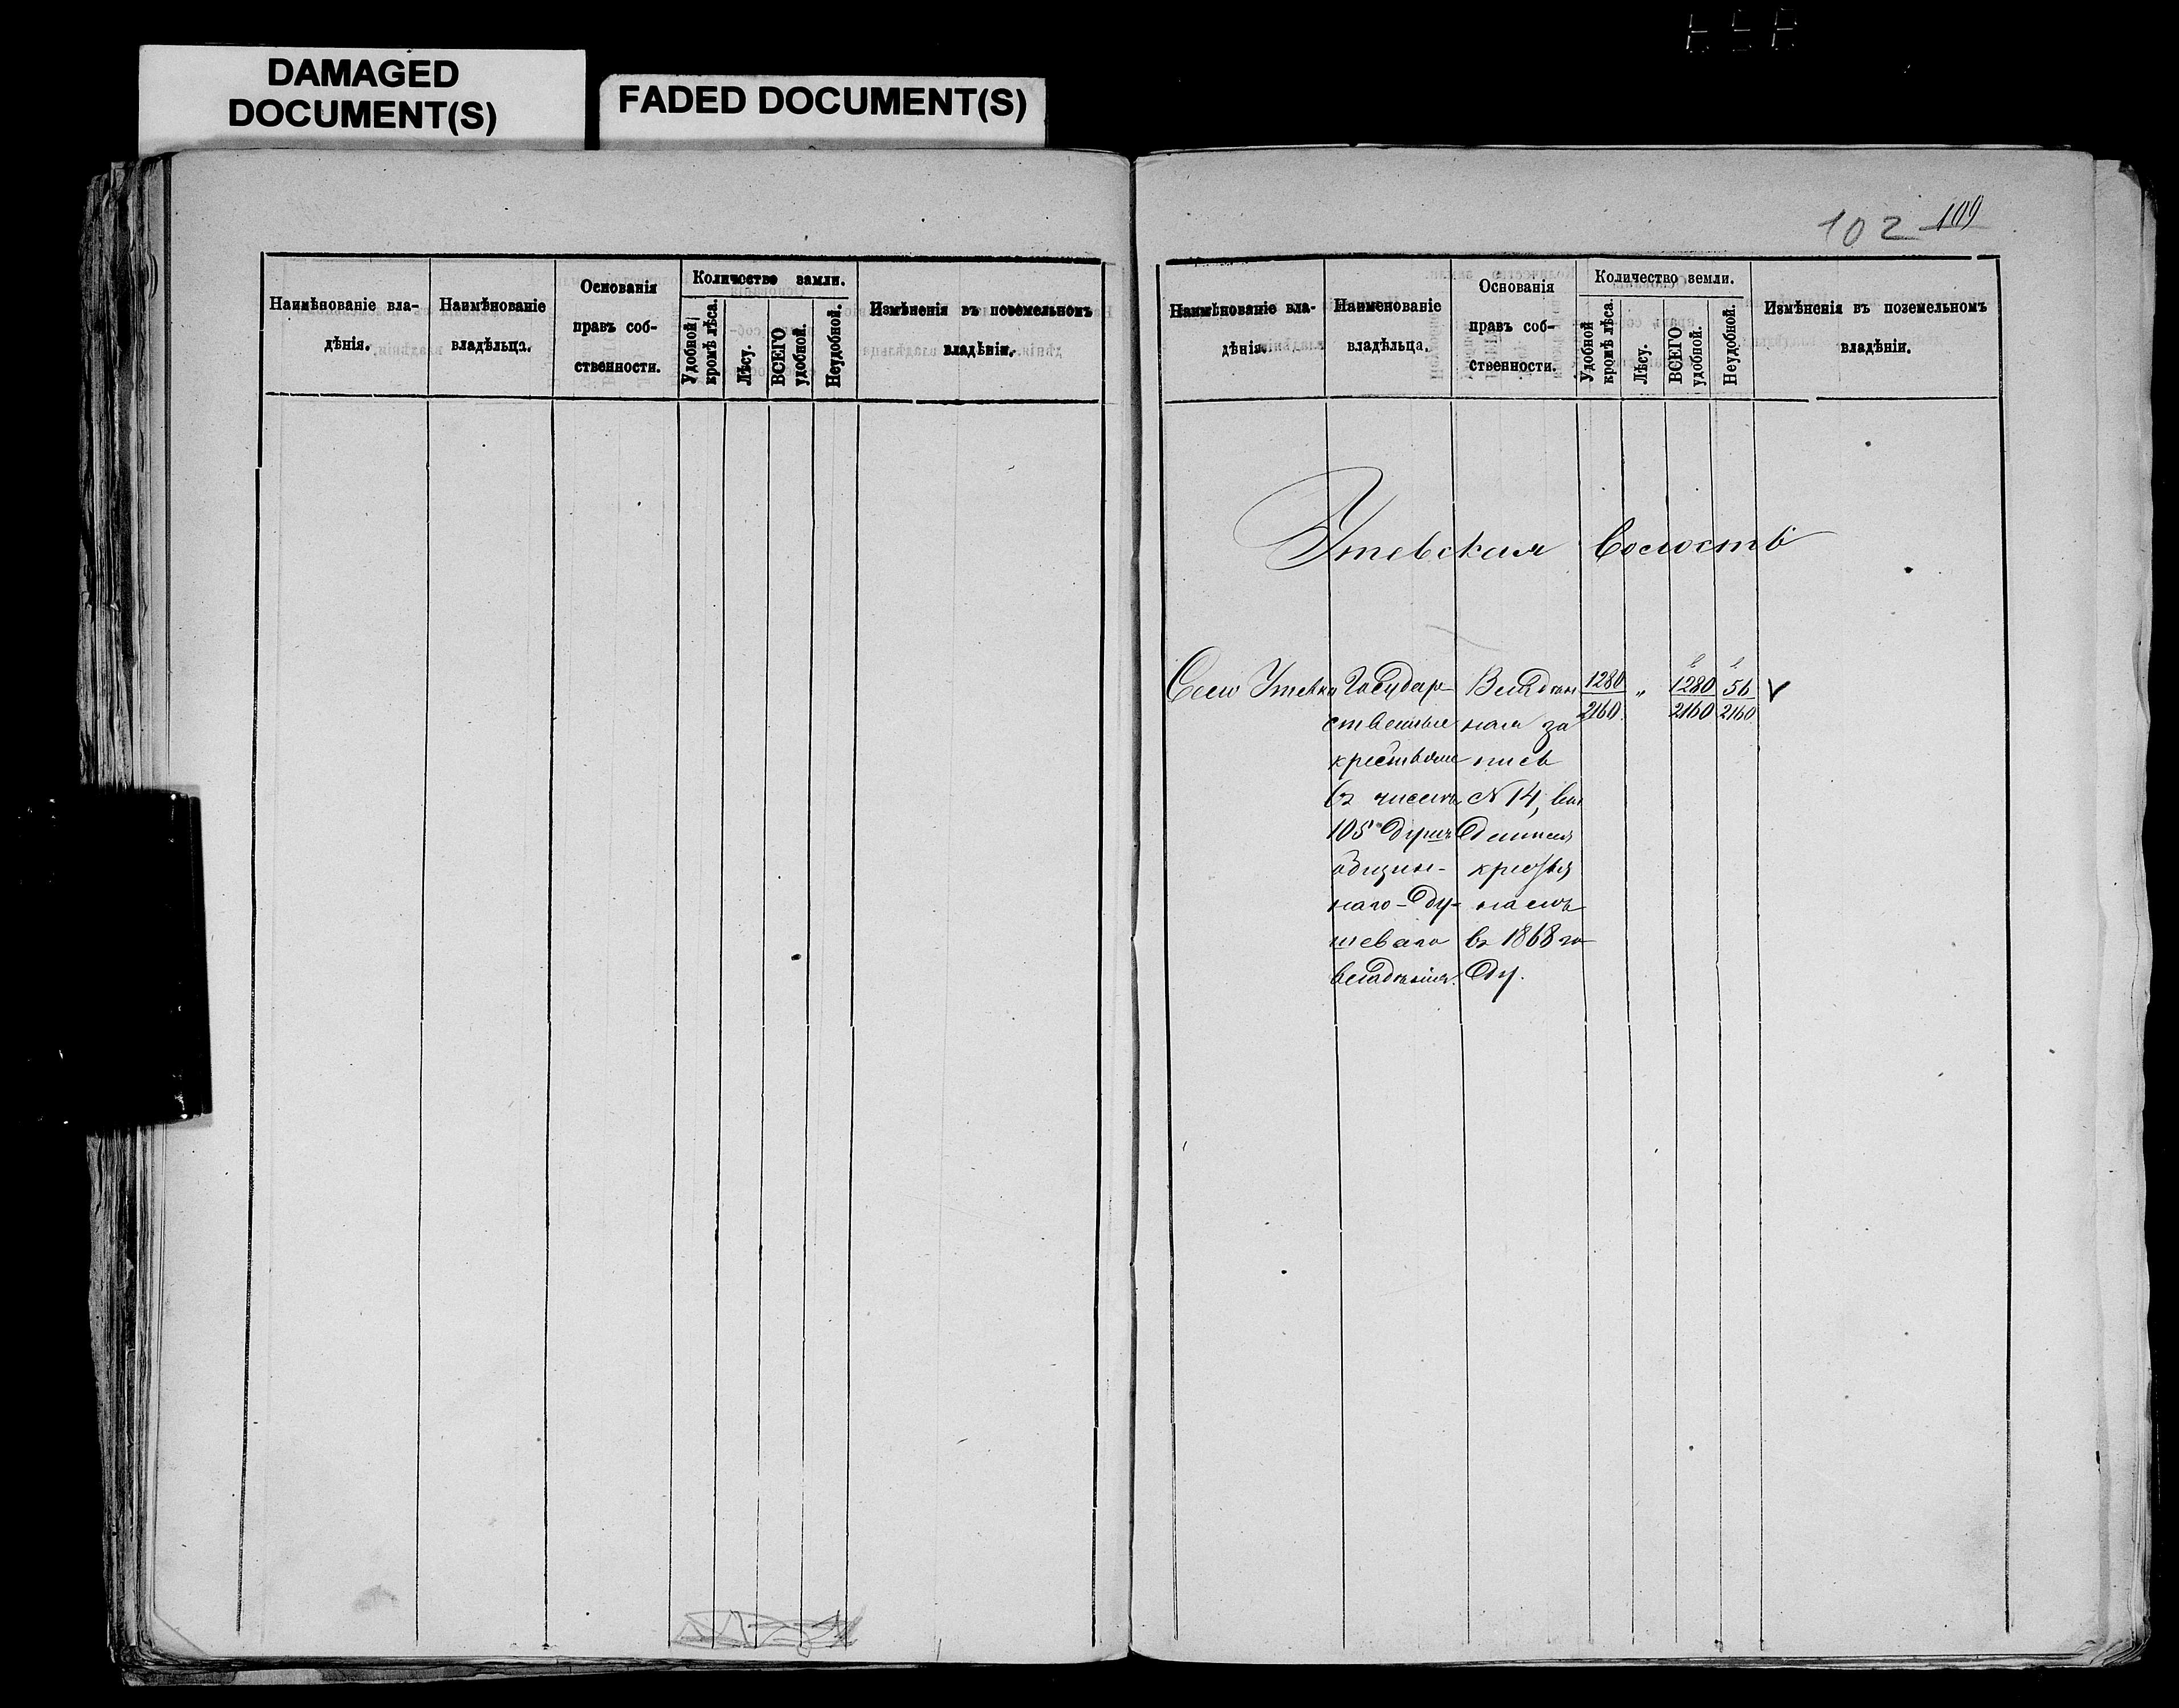 DAMAGED
DOCUMENT(S)
FADED DOCUMENT(S)
Наимѣнованіе вла-
дѣнія.
Наимѣнованіе
владѣльца.
Основанія
правъ соб-
ственности.
Количество земли.
Удобной
кромѣ лѣса.
Лѣсу.
ВСЕГО
удобной.
Неудобной.
Измѣненія въ поземельномъ
владѣніи.
102 109
Наимѣнованіе вла-
дѣнія.
Наименованіе
владѣльца.
Основанія
правъ соб-
ственности.
Количество земли.
Удобной
кромѣ лѣса.
Лѣсу.
ВСЕГО
удобной.
Неудобной.
Измѣненія въ поземельномъ
владѣніи.
Утевская волость
Село Утевка
Государ-
ственные
крестьяне
въ числѣ
105 душъ
общин-
наго-ду-
шеваго
владѣнія.
Владѣн
ная за
пись
N 14, вы
данная
крестья
намъ
въ 1868 го
ду.
1280
2160
"
1280
2160
56
2160